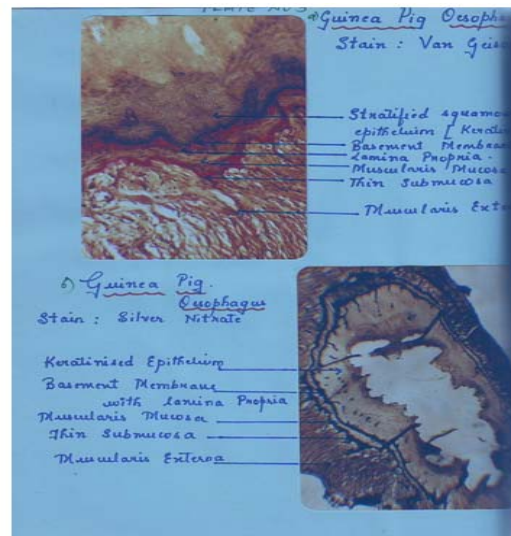 PLATE NO 3
a) Guinea Pig
Stain : Van
Stratified
epithelium [
Basement
Lamina Propria.
Muscularis
Thin Submucosa
Muscularis
b) Guinea Pig
Oesophagus
Stain : Silver Nitrate
Keratinised Epithelium
Basement Membrane
with lamina Propria
Muscularis Mucosa
Thin Submucosa
Muscularis Externa